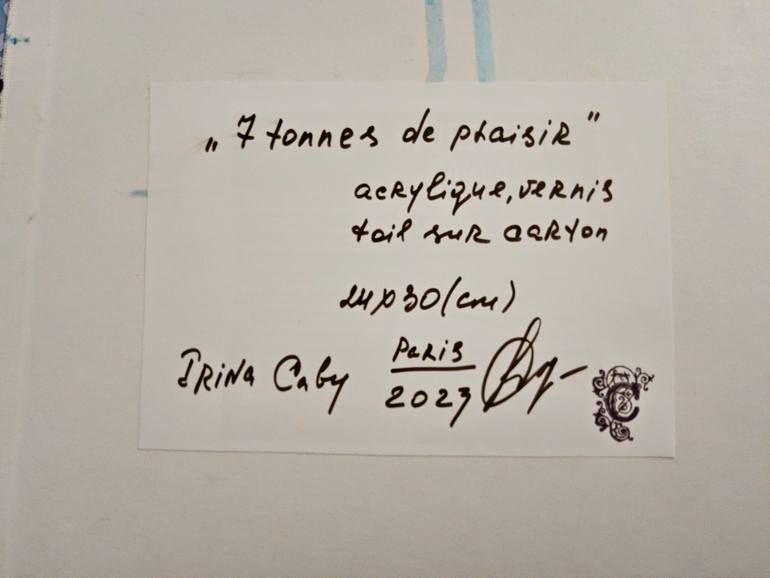 „7 tonnes de plaisir"
acrylique, vernis
toil sur carton
24x30 (cm)
Irina Caby Paris
2023